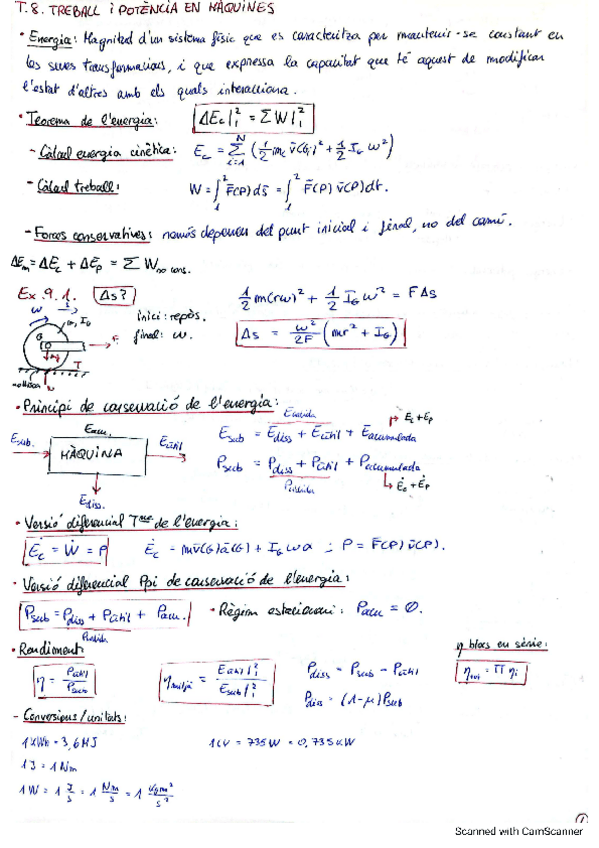 T.8. TREBALL i POTÈNCIA EN MÀQUINES
• Energia: Magnitud d'un sistema físic que es caracteritza per mantenir-se constant en
les seves transformacions, i que expressa la capacitat que té aquest de modificar
l'estat d'altres amb els quals interacciona.
• Teorema de l'energia: ΔEc]₁² = ΣW]₁²
- Càlcul energia cinètica: Ec = Σ_{i=1}^{N} (1/2 mᵢ v̄(Gᵢ)² + 1/2 I_G ω²)
- Càlcul treball: W = ∫₁² F̄(P) ds̄ = ∫₁² F̄(P) v̄(P) dt.
- Forces conservatives: només depenen del punt inicial i final, no del camí.
ΔEm = ΔEc + ΔEp = Σ W no cons.
Ex. 9.1. Δs?
inici: repòs.
final: ω.
1/2 m(rω)² + 1/2 I_G ω² = F Δs
Δs = ω²/2F (mr² + I_G)
• Principi de conservació de l'energia:
Esub. Eacu. MÀQUINA Eútil Ediss.
Esub = Ediss + Eútil + Eacumulada
Ec + Ep
Psub = Pdiss + Pútil + Pacumulada
Ėc + Ėp
• Versió diferencial Tma de l'energia:
Ėc = Ẇ = P Ėc = m v̄(G) ā(G) + I_G ω α ; P = F̄(P) v̄(P).
• Versió diferencial Ppi de conservació de l'energia:
Psub = Pdiss + Pútil + Pacu. • Règim estacionari: Pacu = 0.
• Rendiment
η = Pútil/Psub
η mitjà = Eútil]₁²/Esub]₁²
Pdiss = Psub - Pútil
Pdiss = (1-μ) Psub
η blocs en sèrie:
η tot = Π ηᵢ
- Conversions/unitats:
1 kWh = 3,6 MJ 1 CV = 735 W = 0,735 kW
1 J = 1 Nm
1 W = 1 J/s = 1 Nm/s = 1 kgm²/s²
Scanned with CamScanner